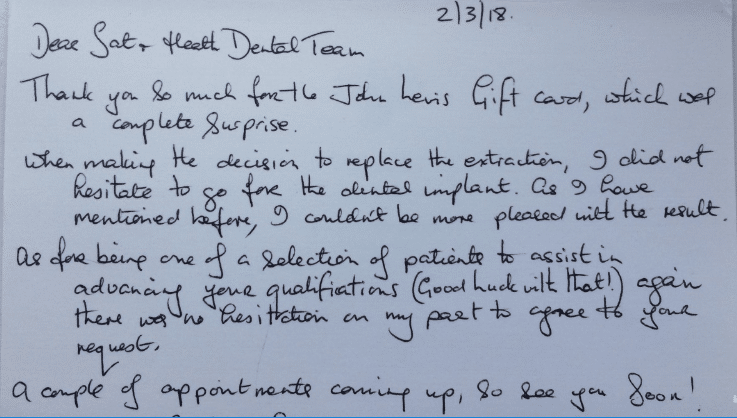 2/3/18.
Dear Sat & Heath Dental Team
Thank you so much for the John Lewis Gift card, which was
a complete surprise.
When making the decision to replace the extraction, I did not
hesitate to go for the dental implant. As I have
mentioned before, I couldn't be more pleased with the result.
As for being one of a selection of patients to assist in
advancing your qualifications (Good luck with that!) again
there was no hesitation on my part to agree to your
request.
A couple of appointments coming up, so see you soon!